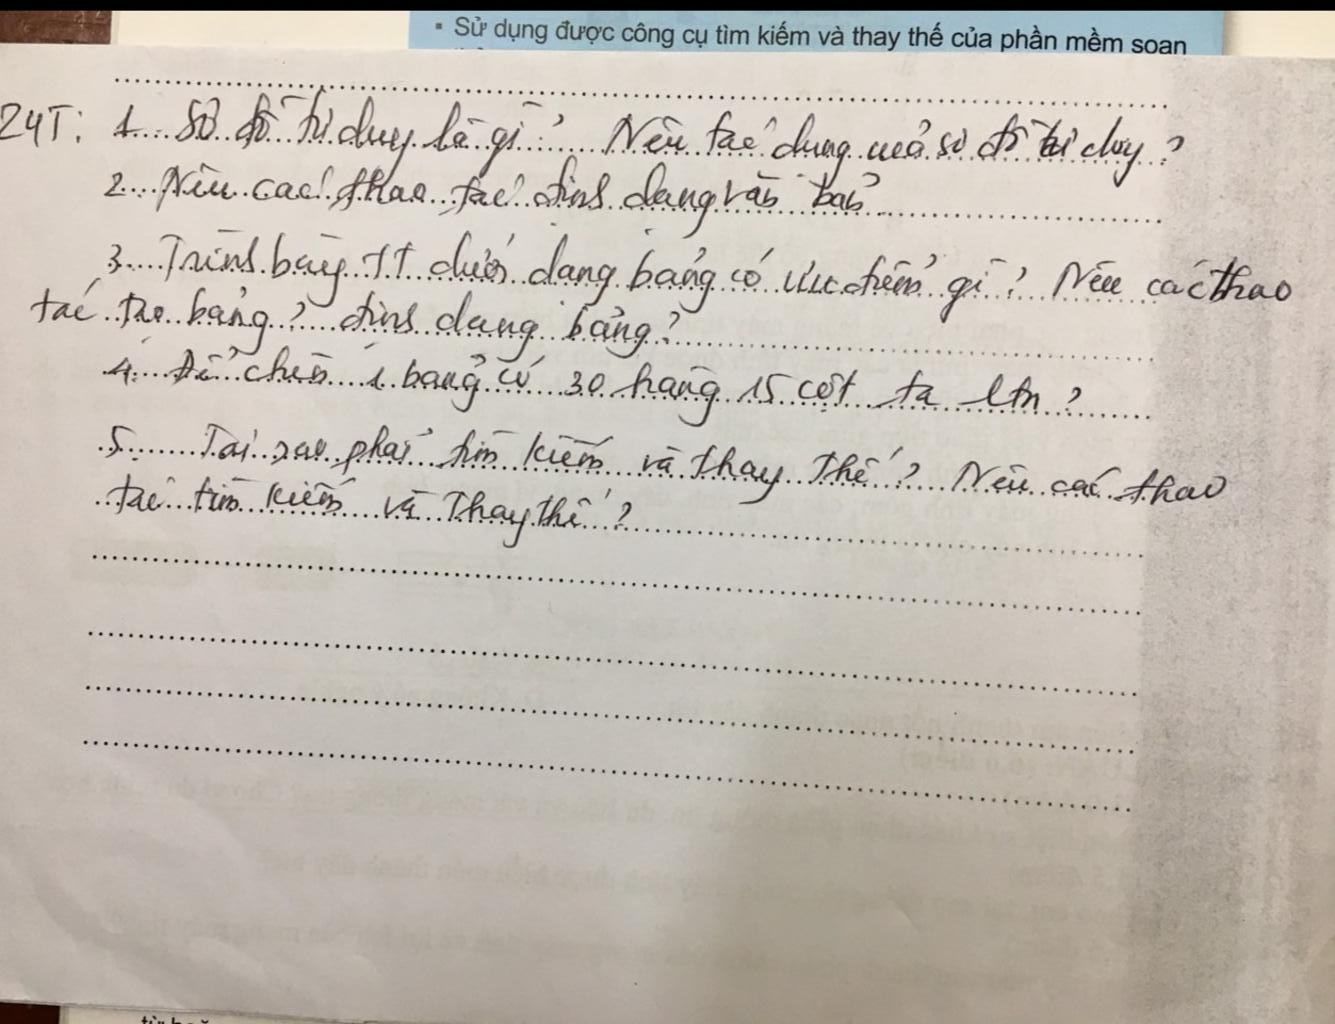 ▪ Sử dụng được công cụ tìm kiếm và thay thế của phần mềm soạn
24T: 1. Sơ đồ tư duy là gì? Nêu tác dụng của sơ đồ tư duy?
2. Nêu các thao tác định dạng văn bản
3. Trình bày TT dưới dạng bảng có ưu điểm gì? Nêu các thao
tác tạo bảng? định dạng bảng?
4. Để chèn 1 bảng có 30 hàng 15 cột ta ltn?
5. Tại sao phải tìm kiếm và thay thế? Nêu các thao
tác tìm kiếm và Thay thế?